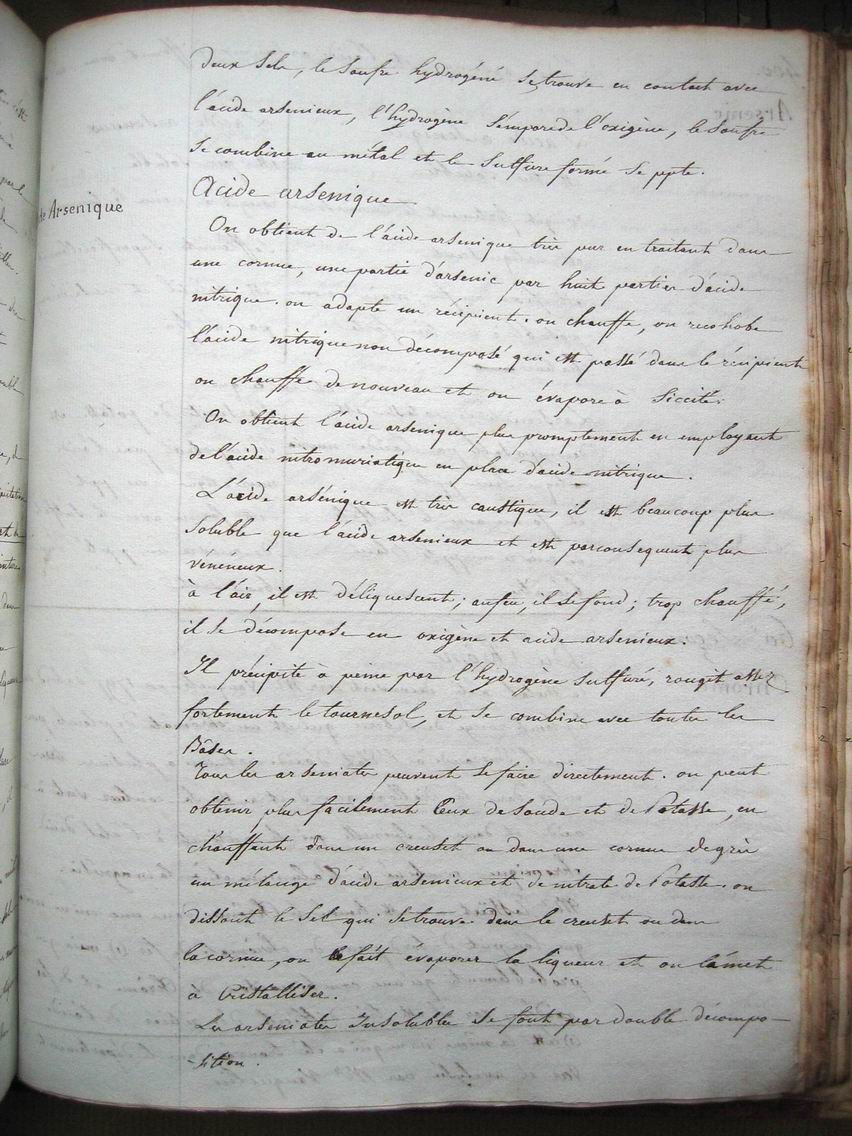 deux Sels, le Soufre hydrogéné Se trouve en contact avec
l'acide arsenieux, l'hydrogène S'empare de l'oxigène, le Soufre
Se combine au métal et le Sulfure formé Se ppte.
Acide arsenique
de Arsenique
On obtient de l'acide arsenique très pur en traitant dans
une cornue, une partie d'arsenic par huit parties d'acide
nitrique. on adapte un récipient. on chauffe, on recohobe
l'acide nitrique non décomposé qui est passé dans le récipient
on chauffe de nouveau et on évapore à Siccité.
On obtient l'acide arsenique plus promptement en employant
de l'acide nitromuriatique en place d'acide nitrique.
L'acide arsénique est très caustique, il est beaucoup plus
Soluble que l'acide arsenieux et est parconsequent plus
vénéneux.
à l'air, il est déliquescent; au feu, il Se fond; trop chauffé,
il Se décompose en oxigène et acide arsenieux.
Il précipite à peine par l'hydrogène Sulfuré, rougit assez
fortement le tournesol, et Se combine avec toutes les
Bâses.
Tous les arseniates peuvent Se faire directement. on peut
obtenir plus facilement Ceux de Soude et de Potasse, en
chauffant dans un creuset ou dans une cornue de grès
un mélange d'acide arsenieux et de nitrate de Potasse. on
dissout le Sel qui Se trouve dans le creuset ou dans
la cornue, on le fait évaporer la liqueur et on la met
à Cristalliser.
Les arseniates Insolubles Se font par double décompo-
-sition.